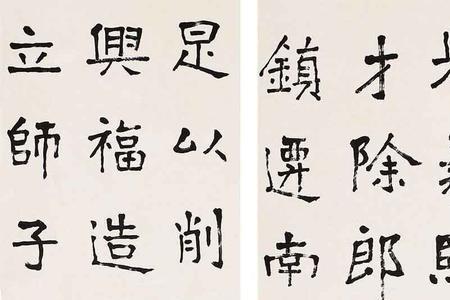 才除郎
鎮遷南
足以削
興福造
立師子